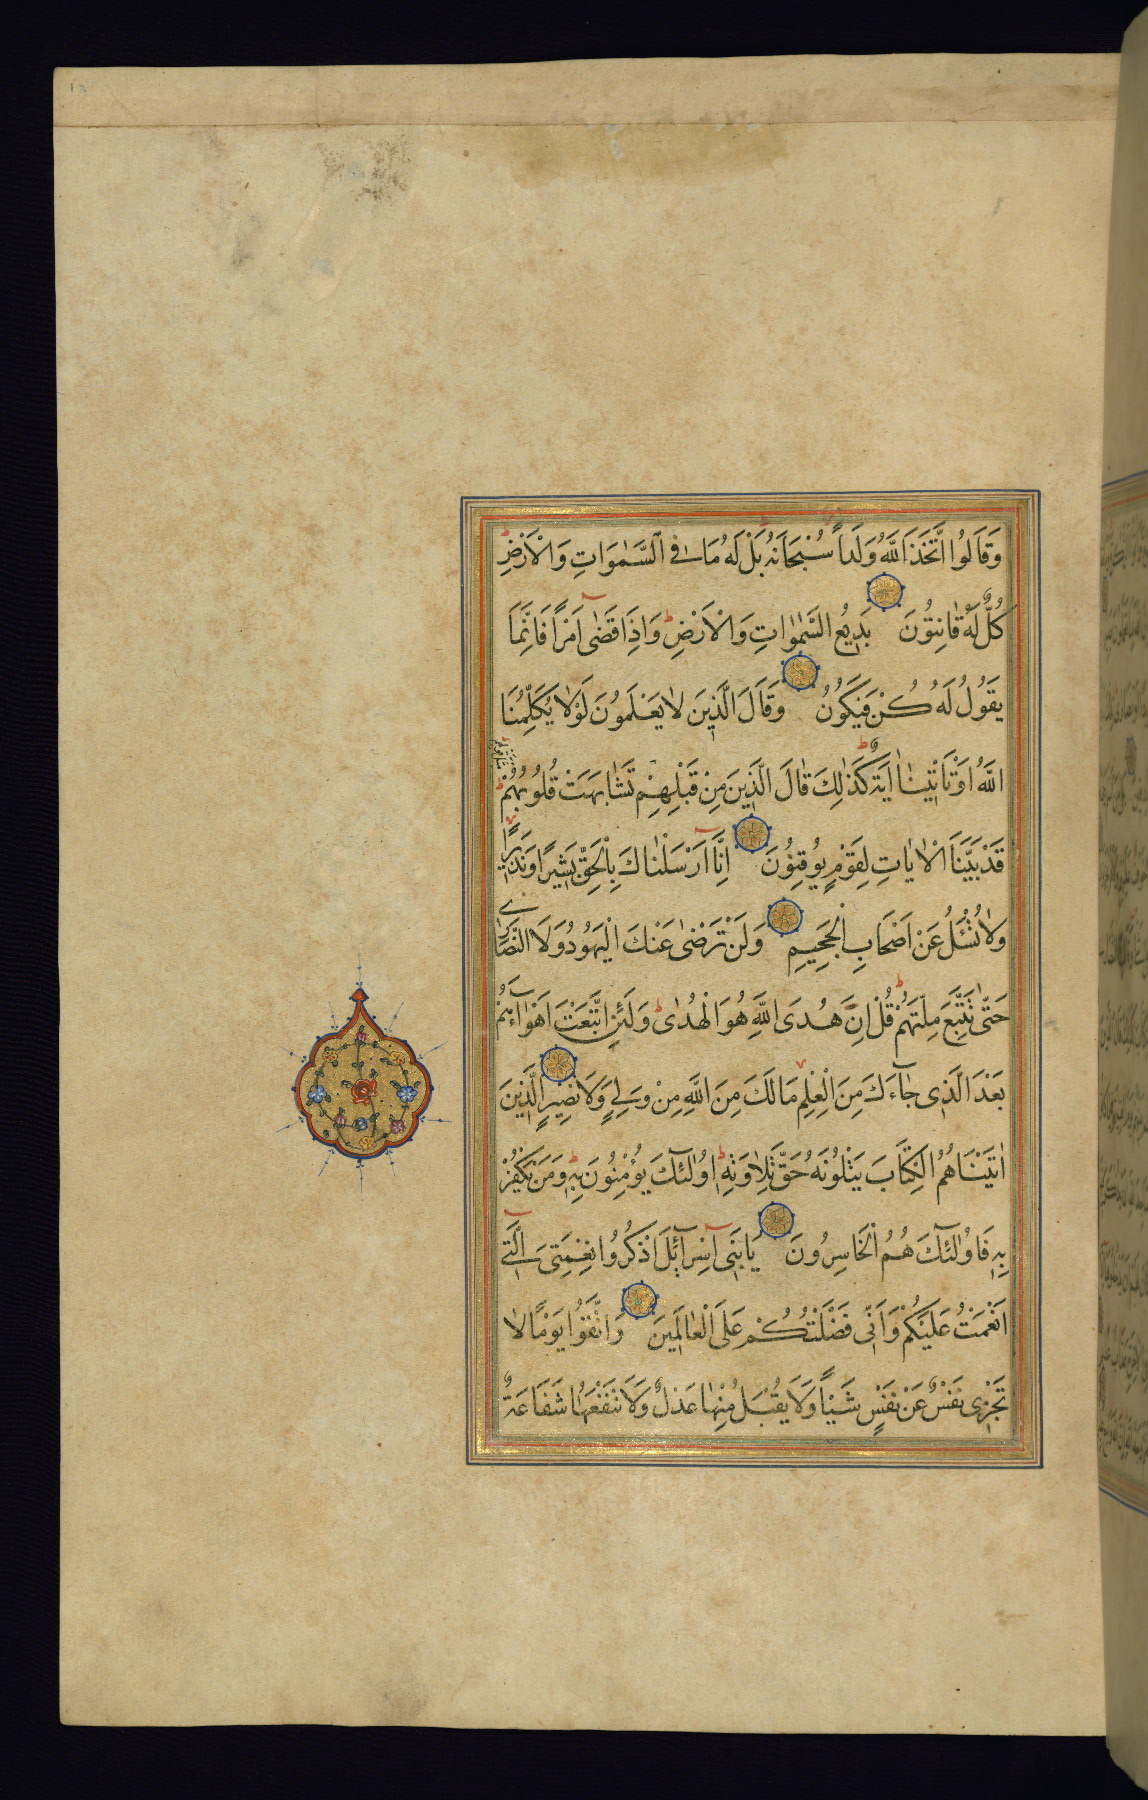 وَقَالُوا اتَّخَذَ اللَّهُ وَلَداً سُبْحَانَهُ بَلْ لَهُ مَا فِي السَّمٰوَاتِ وَالْاَرْضِ
كُلٌّ لَهُ قَانِتُونَ بَدِيعُ السَّمٰوَاتِ وَالْاَرْضِ وَاِذَا قَضٰى اَمْراً فَاِنَّمَا
يَقُولُ لَهُ كُنْ فَيَكُونُ وَقَالَ الَّذِينَ لَا يَعْلَمُونَ لَوْلَا يُكَلِّمُنَا
اللَّهُ اَوْ تَأْتِينَا اٰيَةٌ كَذٰلِكَ قَالَ الَّذِينَ مِنْ قَبْلِهِمْ تَشَابَهَتْ قُلُوبُهُمْ
قَدْ بَيَّنَّا الْاٰيَاتِ لِقَوْمٍ يُوقِنُونَ اِنَّا اَرْسَلْنَاكَ بِالْحَقِّ بَشِيراً وَنَذِيراً
وَلَا تُسْئَلُ عَنْ اَصْحَابِ الْجَحِيمِ وَلَنْ تَرْضٰى عَنْكَ الْيَهُودُ وَلَا النَّصَارٰى
حَتّٰى تَتَّبِعَ مِلَّتَهُمْ قُلْ اِنَّ هُدَى اللَّهِ هُوَ الْهُدٰى وَلَئِنِ اتَّبَعْتَ اَهْوَآءَهُمْ
بَعْدَ الَّذِي جَآءَكَ مِنَ الْعِلْمِ مَا لَكَ مِنَ اللَّهِ مِنْ وَلِيٍّ وَلَا نَصِيرٍ الَّذِينَ
اٰتَيْنَاهُمُ الْكِتَابَ يَتْلُونَهُ حَقَّ تِلَاوَتِهِ اُولٰئِكَ يُؤْمِنُونَ بِهِ وَمَنْ يَكْفُرْ
بِهِ فَاُولٰئِكَ هُمُ الْخَاسِرُونَ يَا بَنِي اِسْرَآئِلَ اذْكُرُوا نِعْمَتِيَ الَّتِي
اَنْعَمْتُ عَلَيْكُمْ وَاَنِّي فَضَّلْتُكُمْ عَلَى الْعَالَمِينَ وَاتَّقُوا يَوْماً لَا
تَجْزِي نَفْسٌ عَنْ نَفْسٍ شَيْئاً وَلَا يُقْبَلُ مِنْهَا عَدْلٌ وَلَا تَنْفَعُهَا شَفَاعَةٌ